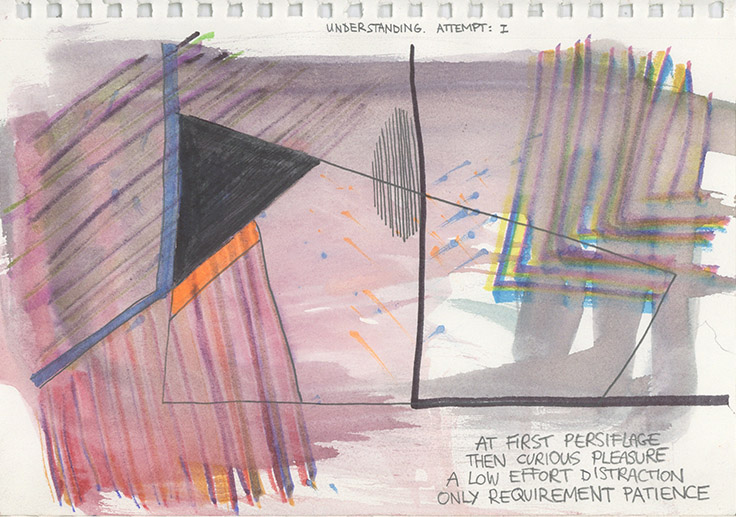 UNDERSTANDING. ATTEMPT: I
AT FIRST PERSIFLAGE
THEN CURIOUS PLEASURE
A LOW EFFORT DISTRACTION
ONLY REQUIREMENT PATIENCE